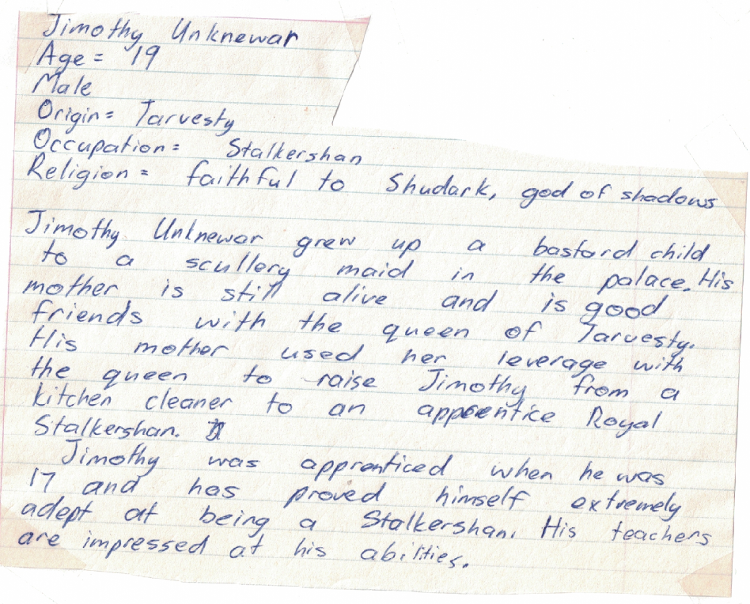 Jimothy Unknewar
Age = 19
Male
Origin = Tarvesty
Occupation = Stalkershan
Religion = faithful to Shudark, god of shadows
Jimothy Unknewar grew up a bastard child
to a scullery maid in the palace. His
mother is still alive and is good
friends with the queen of Tarvesty.
His mother used her leverage with
the queen to raise Jimothy from a
kitchen cleaner to an apprentice Royal
Stalkershan.
Jimothy was apprenticed when he was
17 and has proved himself extremely
adept at being a Stalkershan. His teachers
are impressed at his abilities.